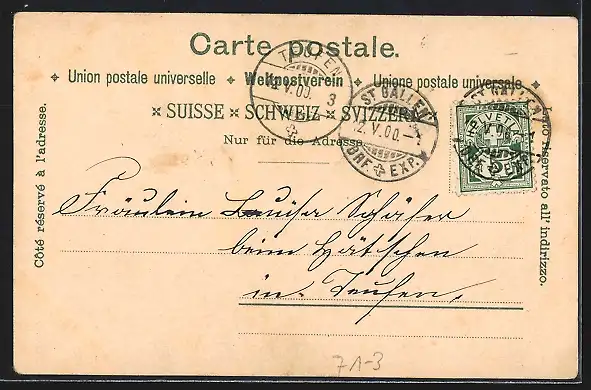 Carte postale.
✦ Union postale universelle ✦ Weltpostverein ✦ Unione postale universale ✦
× SUISSE × SCHWEIZ × SVIZZERA ×
Nur für die Adresse.
Côté réservé à l'adresse.
Lato riservato all' indirizzo.
TEUFEN
12.V.00. 3
ST GALLEN
12.V.00.
BRF EXP.
HELVETIA
5
ST GALLEN
V.00
BRF. EXP.
Fräulein Louisa Schäfer
beim Hätschen
in Teufen.
71-3